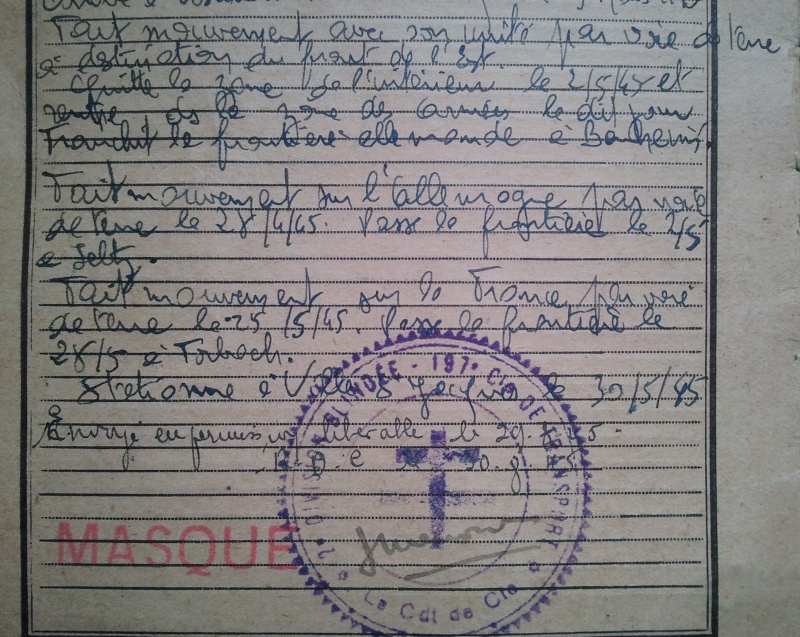 Fait mouvement avec son unité par voie de terre
à destination du front de l'Est.
Quitte la zone de l'intérieur le 2/5/45 et
rentre ds la zone des armées le dit jour
Franchit la frontière allemande à
Fait mouvement sur l'Allemagne par voie
de terre le 28/4/45. Passe la frontière le 2/5
à Seltz.
Fait mouvement sur la France par voie
de terre le 25/5/45. Passe la frontière le
28/5 à Forbach.
Stationne à le 30/5/45
Envoyé en permission libérable le 29.
MASQUE
2e DIVISION BLINDÉE - 197e Cie DE TRANSPORT
Le Cdt de Cie